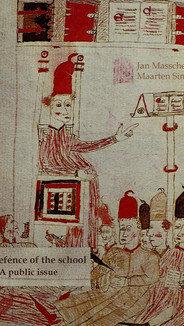 Jan Massche
Maarten Sim
A
efence of the school
A public issue